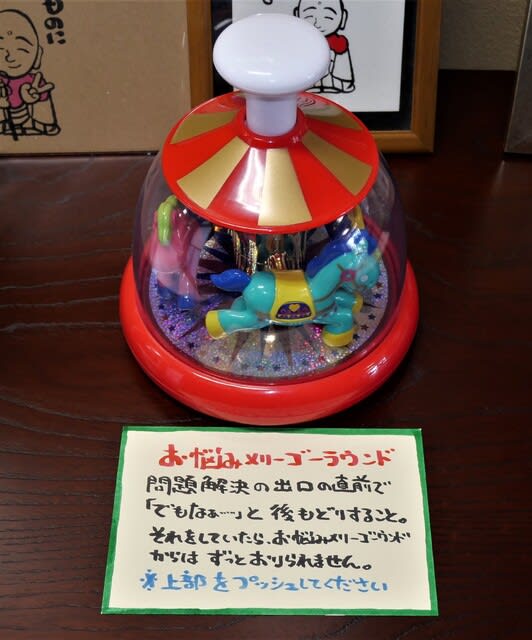 ものに
お悩みメリーゴーラウンド
問題解決の出口の直前で
「でもなぁ……」と後もどりすること。
それをしていたら、お悩みメリーゴーランド
からは ずっとおりられません。
※上部をプッシュしてください